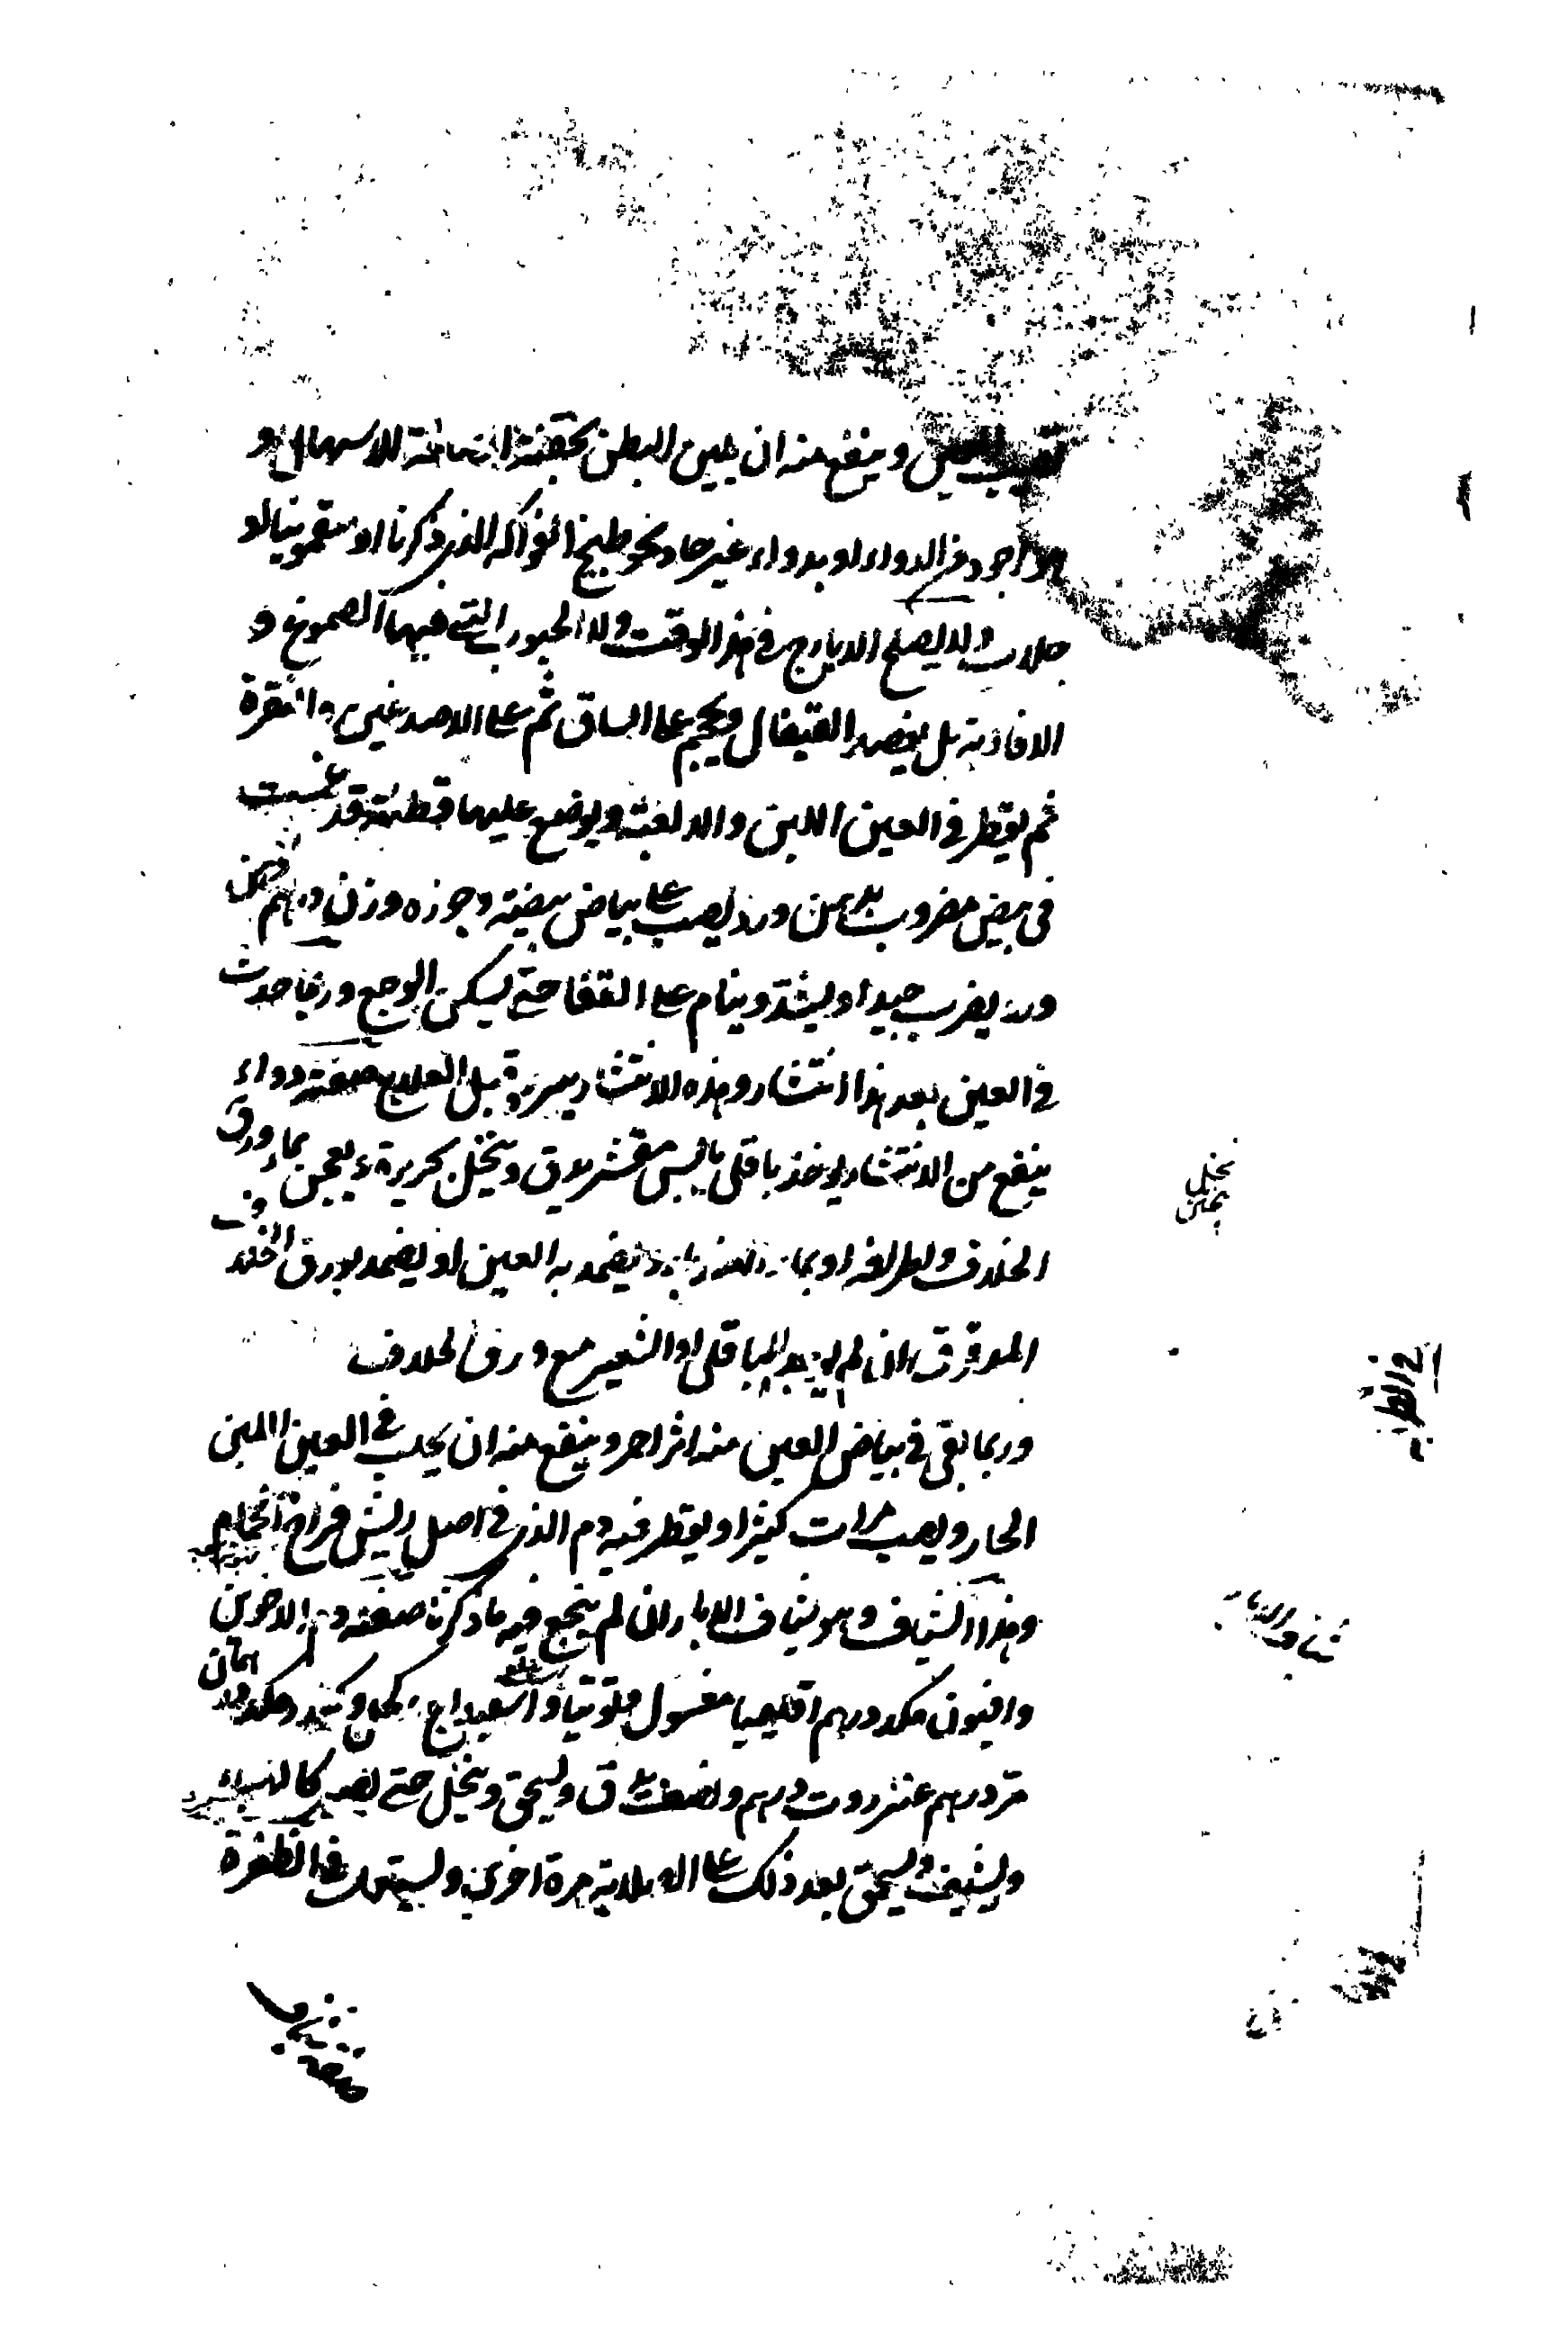 تصيب العين وينفع منه ان يلين البطن بحقنة الصالحة للاسهال و
هو اجود من الدواء او بدواء غير حاد نحو طبيخ الفواكه الذي ذكرنا او سقمونيا او
جلاب ولا يصلح الايارج في هذا الوقت ولا الحبوب التي فيها الصموغ و
الافاوية بل يفصد القيفال ويحجم على الساق ثم على الاصدغين والنقرة
ثم يقطر في العين اللبن والالعبة ويوضع عليها قطنة قد غمست
في بيض مضروب بدهن ورد يصب على بياض بيضة وجوزه وزن درهم دهن
ورد يضرب جيدا ويشد وينام على القفا حتى يسكن الوجع وربما حدث
في العين بعد هذا انتشار وهذه الانتشار يبرئ قبل العلاج صفة دواء
ينفع من الانتشار يوخذ باقلى يابس مقشر يدق وينخل بحريرة ويعجن بماء ورق
الخلاف ولطرافه او بماء ويضمد به العين او يضمد بورق الخلاف
المدقوق ان لم يوجد الباقلى او الشعير مع ورق الخلاف
وربما بقي في بياض العين منه اثر احمر وينفع منه ان يحلب في العين اللبن
الحار ويصب مرات كثيرا ويقطر فيه دم الذي في اصل ريش فراخ الحمام
وهذا الشياف وهو شياف الابار ان لم ينجع فيه ما ذكرنا صفته دم الاخوين
وافيون مكد درهم اقليميا مغسول وتوتيا واسفيداج وكندر مكد درهمان
مر درهم عنزروت درهم ونصف يدق ويسحق وينخل حتى يصير كالهباء
ويشيف ويسحق بعد ذلك على الصلاية مرة اخرى ويستعمل في الظفرة
ينخل
شياف الابار